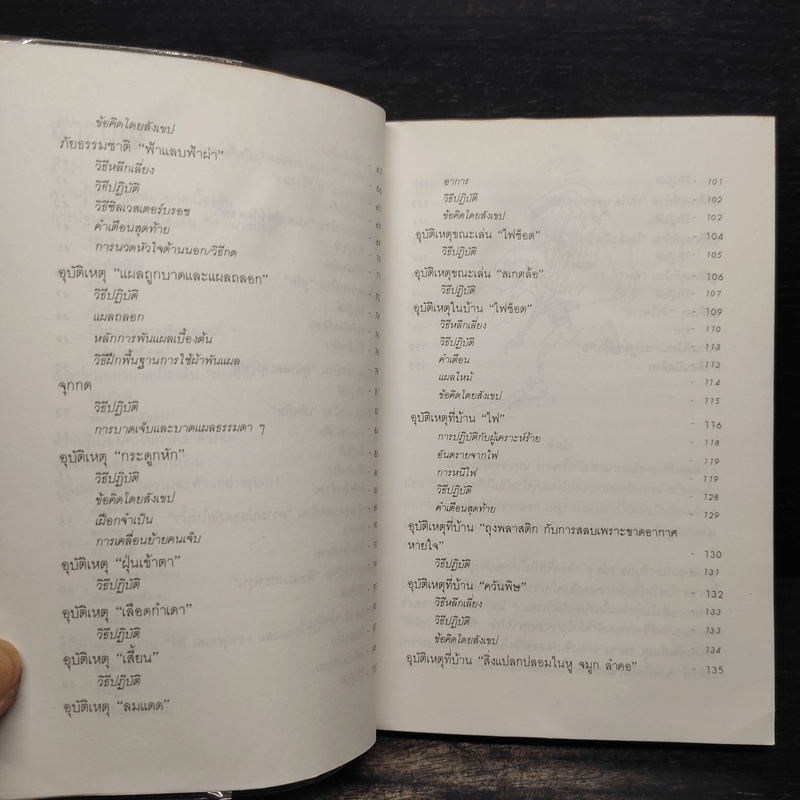 ข้อคิดโดยสังเขป
ภัยธรรมชาติ “ฟ้าแลบฟ้าผ่า”
วิธีหลีกเลี่ยง
วิธีปฏิบัติ
วิธีซิลเวสเตอร์บรอช
คำเตือนสุดท้าย
การนวดหัวใจด้านนอก/วิธีกด
อุบัติเหตุ “แผลถูกบาดและแผลถลอก”
วิธีปฏิบัติ
แผลถลอก
หลักการพันแผลเบื้องต้น
วิธีฝึกพื้นฐานการใช้ผ้าพันแผล
จุกกด
วิธีปฏิบัติ
การบาดเจ็บและบาดแผลธรรมดา ๆ
อุบัติเหตุ “กระดูกหัก”
วิธีปฏิบัติ
ข้อคิดโดยสังเขป
เฝือกจำเป็น
การเคลื่อนย้ายคนเจ็บ
อุบัติเหตุ “ฝุ่นเข้าตา”
วิธีปฏิบัติ
อุบัติเหตุ “เลือดกำเดา”
วิธีปฏิบัติ
อุบัติเหตุ “เสี้ยน”
วิธีปฏิบัติ
อุบัติเหตุ “ลมแดด”
อาการ - 101
วิธีปฏิบัติ - 102
ข้อคิดโดยสังเขป - 102
อุบัติเหตุขณะเล่น “ไฟช็อต” - 104
วิธีปฏิบัติ - 105
อุบัติเหตุขณะเล่น “สเกตล้อ” - 106
วิธีปฏิบัติ - 107
อุบัติเหตุในบ้าน “ไฟช็อต” - 109
วิธีหลีกเลี่ยง - 110
วิธีปฏิบัติ - 113
คำเตือน - 113
แผลไหม้ - 114
ข้อคิดโดยสังเขป - 115
อุบัติเหตุที่บ้าน “ไฟ” - 116
การปฏิบัติกับผู้เคราะห์ร้าย - 118
อันตรายจากไฟ - 119
การหนีไฟ - 119
วิธีปฏิบัติ - 128
คำเตือนสุดท้าย - 129
อุบัติเหตุที่บ้าน “ถุงพลาสติก กับการสลบเพราะขาดอากาศ
หายใจ” - 130
วิธีปฏิบัติ - 131
อุบัติเหตุที่บ้าน “ควันพิษ” - 132
วิธีหลีกเลี่ยง - 133
วิธีปฏิบัติ - 133
ข้อคิดโดยสังเขป - 134
อุบัติเหตุที่บ้าน “สิ่งแปลกปลอมในหู จมูก ลำคอ” - 135